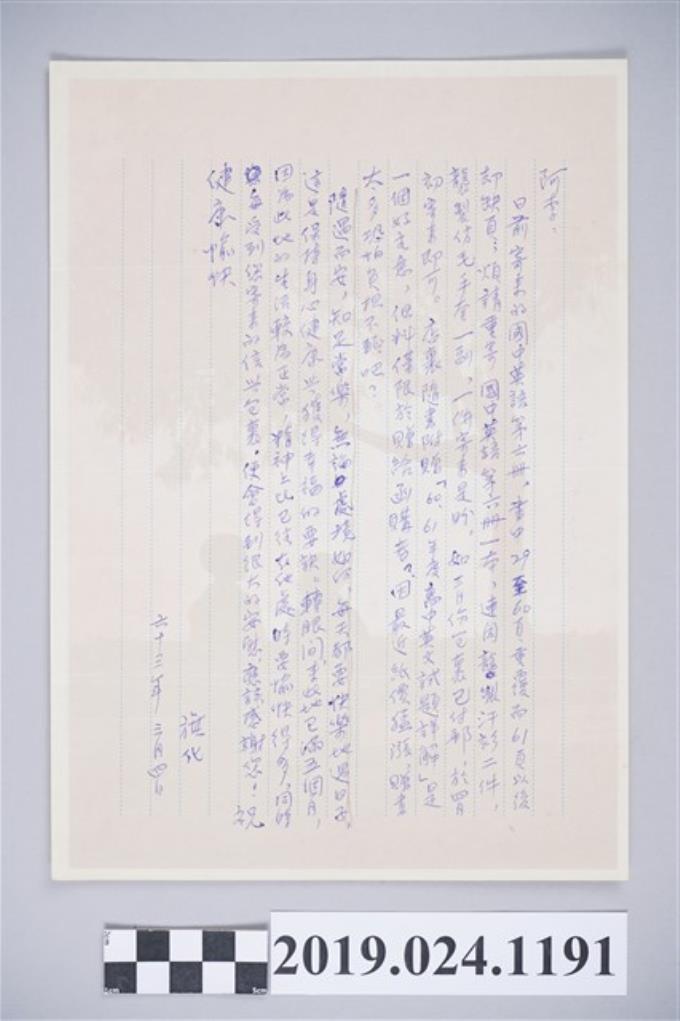 阿李：
日前寄來的國中英語第六冊，書中29至60頁重覆而61頁以後
却缺頁；煩請重寄國中英語第六冊一本，連同龍製汗衫二件，
龍製仿毛手套一副，一併寄來是盼，如三月份包裹已付郵，於四月
初寄來即可。店裏隨書附贈「60、61年度高中英文試題詳解」是
一個好主意，但料僅限於贈給函購者？因最近紙價猛漲，贈書
太多恐怕負担不輕吧？
隨遇而安，知足常樂，無論處境如何，每天都要快樂地過日子，
這是保持身心健康與獲得幸福的要訣。轉眼間來此地已滿五個月，
因為此地的生活較為正常，精神上比已往在他處時要愉快得多，同時
每受到您寄來的信與包裹，便會得到很大的安慰，應該感謝您！祝
健康愉快
旗化
六十三年三月四日
2019.024.1191